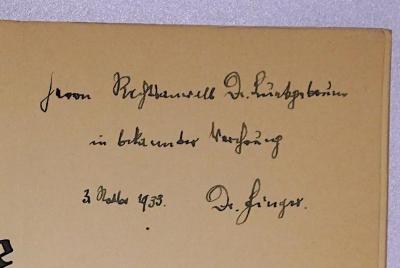 Herrn Rechtsanwalt Dr. Luetgebrune
in bekannter Verehrung
3. Novbr 1933. Dr. Finger.